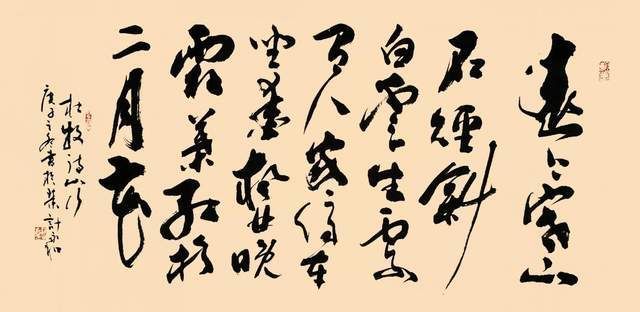 遠上寒山
石徑斜
白雲生處
有人家停車
坐愛楓林晚
霜葉紅於
二月花
杜牧詩山行
庚子之冬書於